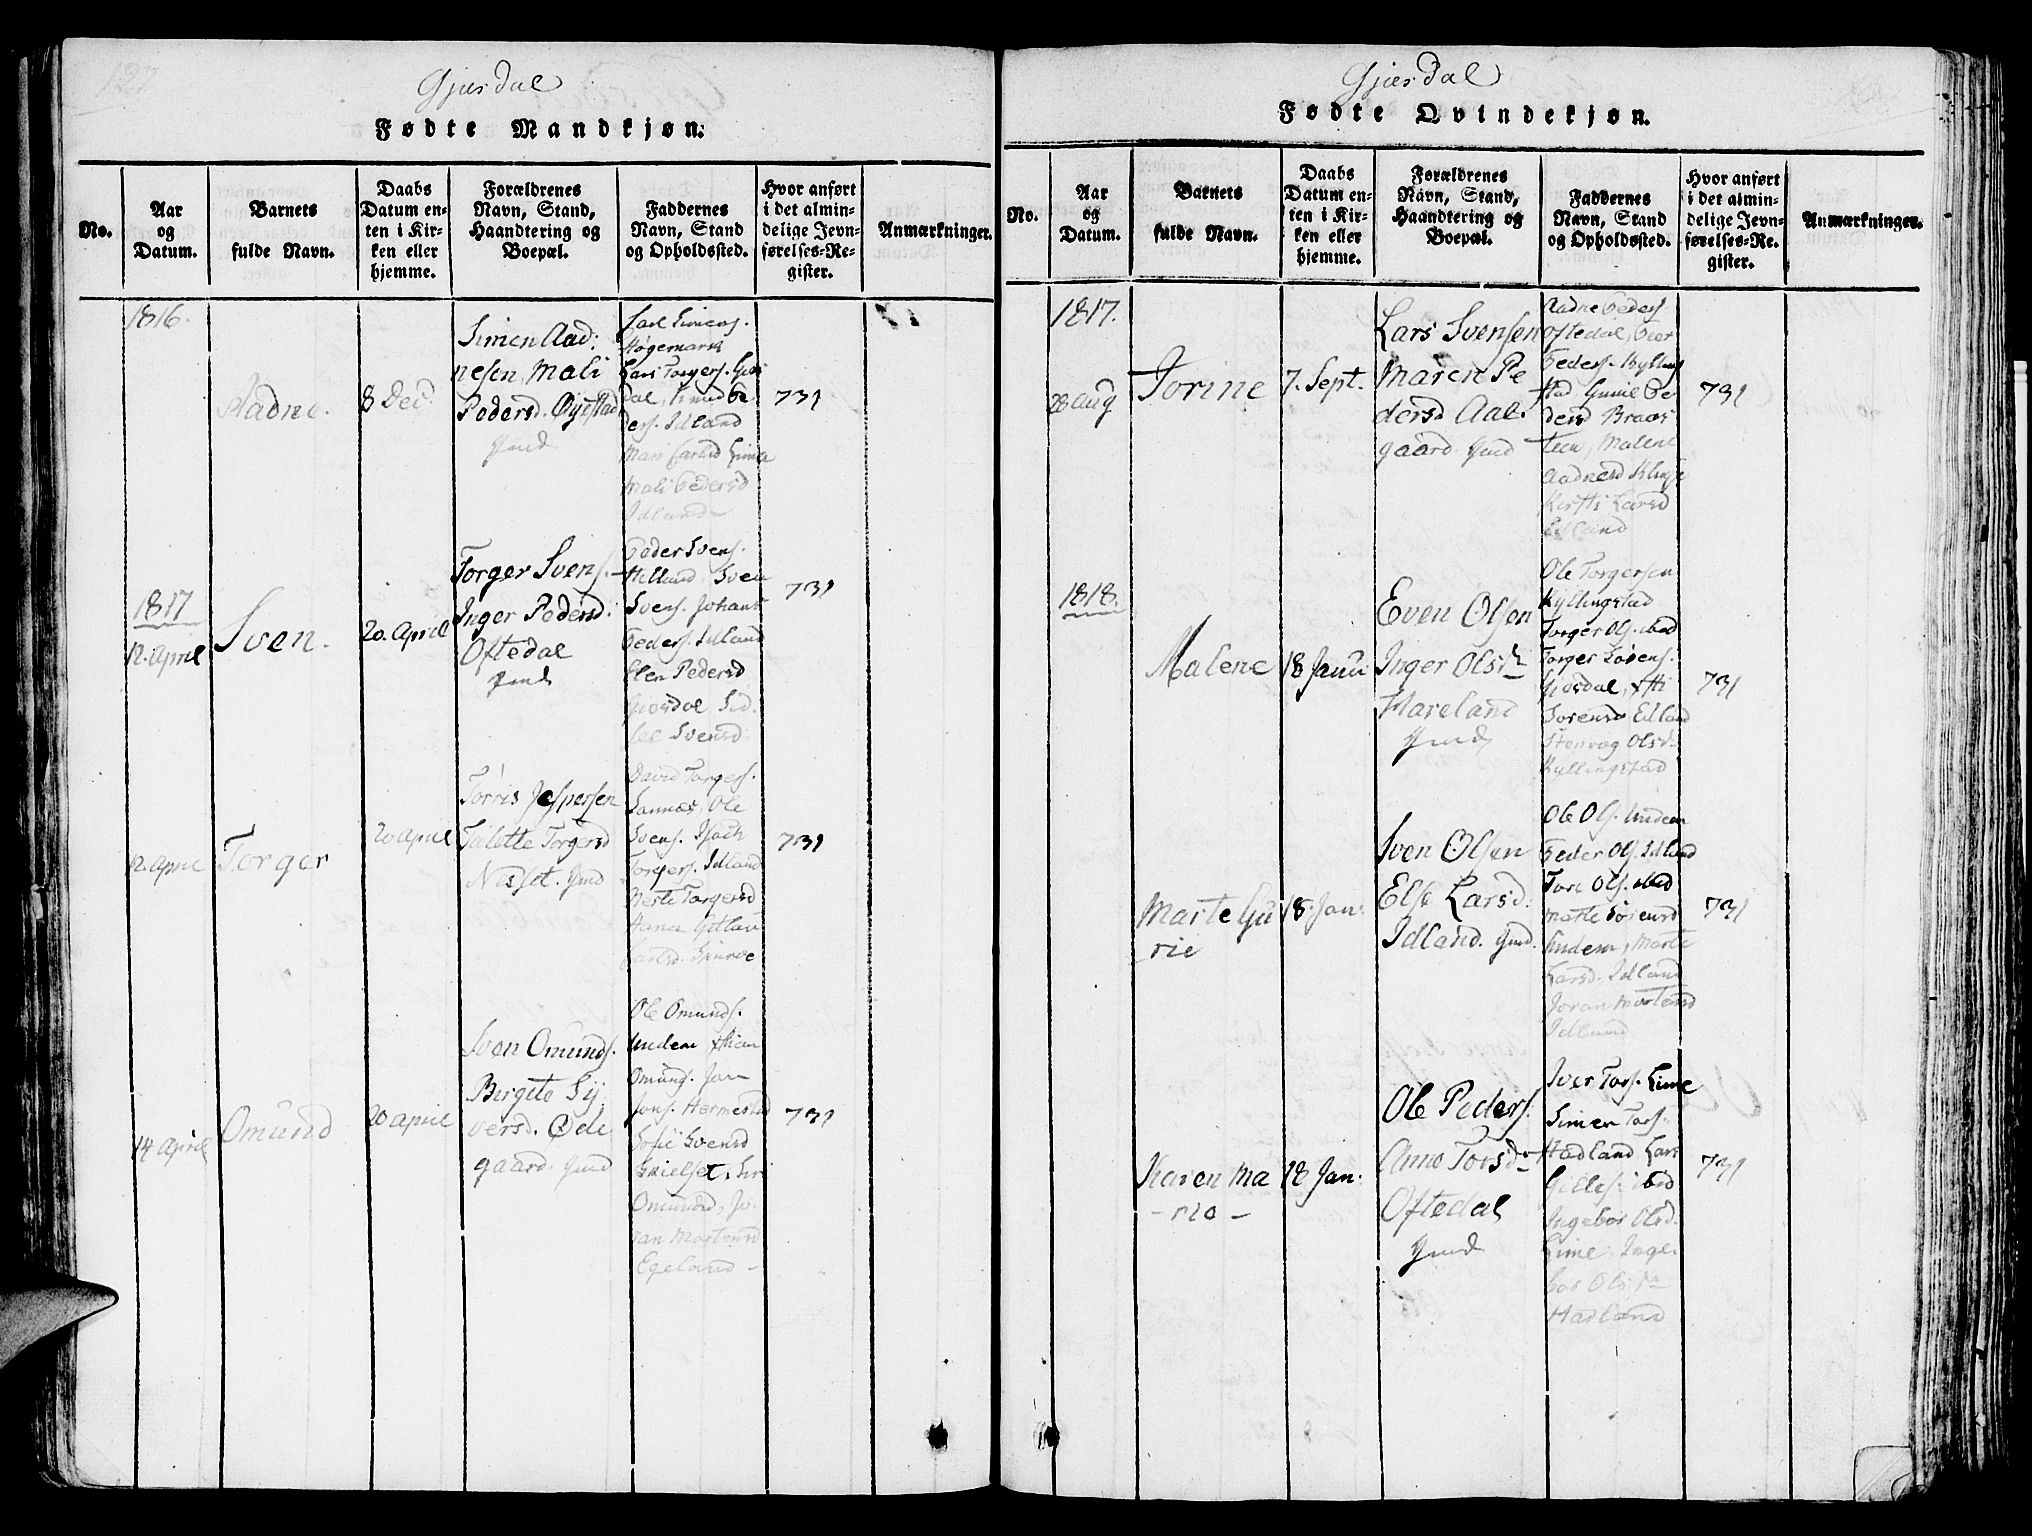 127
Gjæsdal
Fødte Mandkjøn.
No.
Aar
og
Datum.
Barnets
fulde Navn.
Daabs
Datum en-
ten i Kir-
ken eller
hjemme.
Forældrenes
Navn, Stand,
Haandtering og
Boepæl.
Faddernes
Navn, Stand
og Opholdssted.
Hvor anført
i det almin-
delige Jevn-
førelses-Re-
gister.
Anmærkninger.
1816.
Aadne.
8 Dec.
Simen Aad:
nesen, Mali
Pedersd. Øÿestad
Gmd
Carl Simens.
Høgemark
Lars Torgers. Gies
dal, Knud Pe
ders. Idland
Mari Carlsd Lime
Mali Pedersd
Idland
731
1817
12. April
Sven.
20. April
Torger Svens.
Inger Pedersd.
Oftedal
Gmd
Peder Svens.
Helland, Sven
Svens. Johans
Peders. Idland
Elen Pedersd
Giosdal, Sid-
sel Svensd.
731
12. April
Torger
20 April
Tørris Jespersen
Talette Torgersd
Nesset. Gmd
David Torgers.
Sannæs, Ole
Svens. Isach
Torgers. Idland
Berte Torgersd
Hana
Carlsd.
731
14 April
Omund
20 April
Sven Omunds.
Birgite Sÿ
versd. Øde
gaard. Gmd
Ole Omunds.
Undem,
Omunds. Jan
Jons. Hermestad
Sofie Svensd
Omundsd, Jo-
ran Mortensd
Egeland
731
Gjæsdal
Fødte Qvindekjøn.
No.
Aar
og
Datum.
Barnets
fulde Navn.
Daabs
Datum en-
ten i Kir-
ken eller
hjemme.
Forældrenes
Navn, Stand,
Haandtering og
Boepæl.
Faddernes
Navn, Stand
og Opholdssted.
Hvor anført
i det almin-
delige Jevn-
førelses-Re-
gister.
Anmærkninger.
1817.
28 Aug
Torine
7. Sept.
Lars Svensen
Maren Pe
dersd Aal-
gaard Gmd
Aadne Peders
Oftedal, Peer
Peders. Kylling
stad Gunil Pe
dersd Braas
teen, Malene
Aadnesd
Larsd
Edland
731
1818.
Malene
18 Janu
Even Olsen
Inger Olsd
Hareland
Gmd
Ole Torgersen
Kyllingstad
Torger Ols. ibid
Torger Sørens.
Giosdal,
Sørensd Edland
Olsd
Kyllingstad
731
Marte Gu
rie
18. Jan.
Sven Olsen
Else Larsd.
Idland. Gmd.
Ole Ols. Undem
Peder Ols. Idland
Tore Ols. ibid
Marte Sørensd
Undem, Marte
Larsd. Idland
Joran Mortensd
Idland
731
Karen Ma
- ria -
18 Jan.
Ole Peders.
Anne Torsd
Oftedal
Gmd
Iver Tors. Lime
Simen Tors.
Hadland Lars
ibid
Ingebor Olsd.
Lime. Inge
bor Olsd
Hadland
731